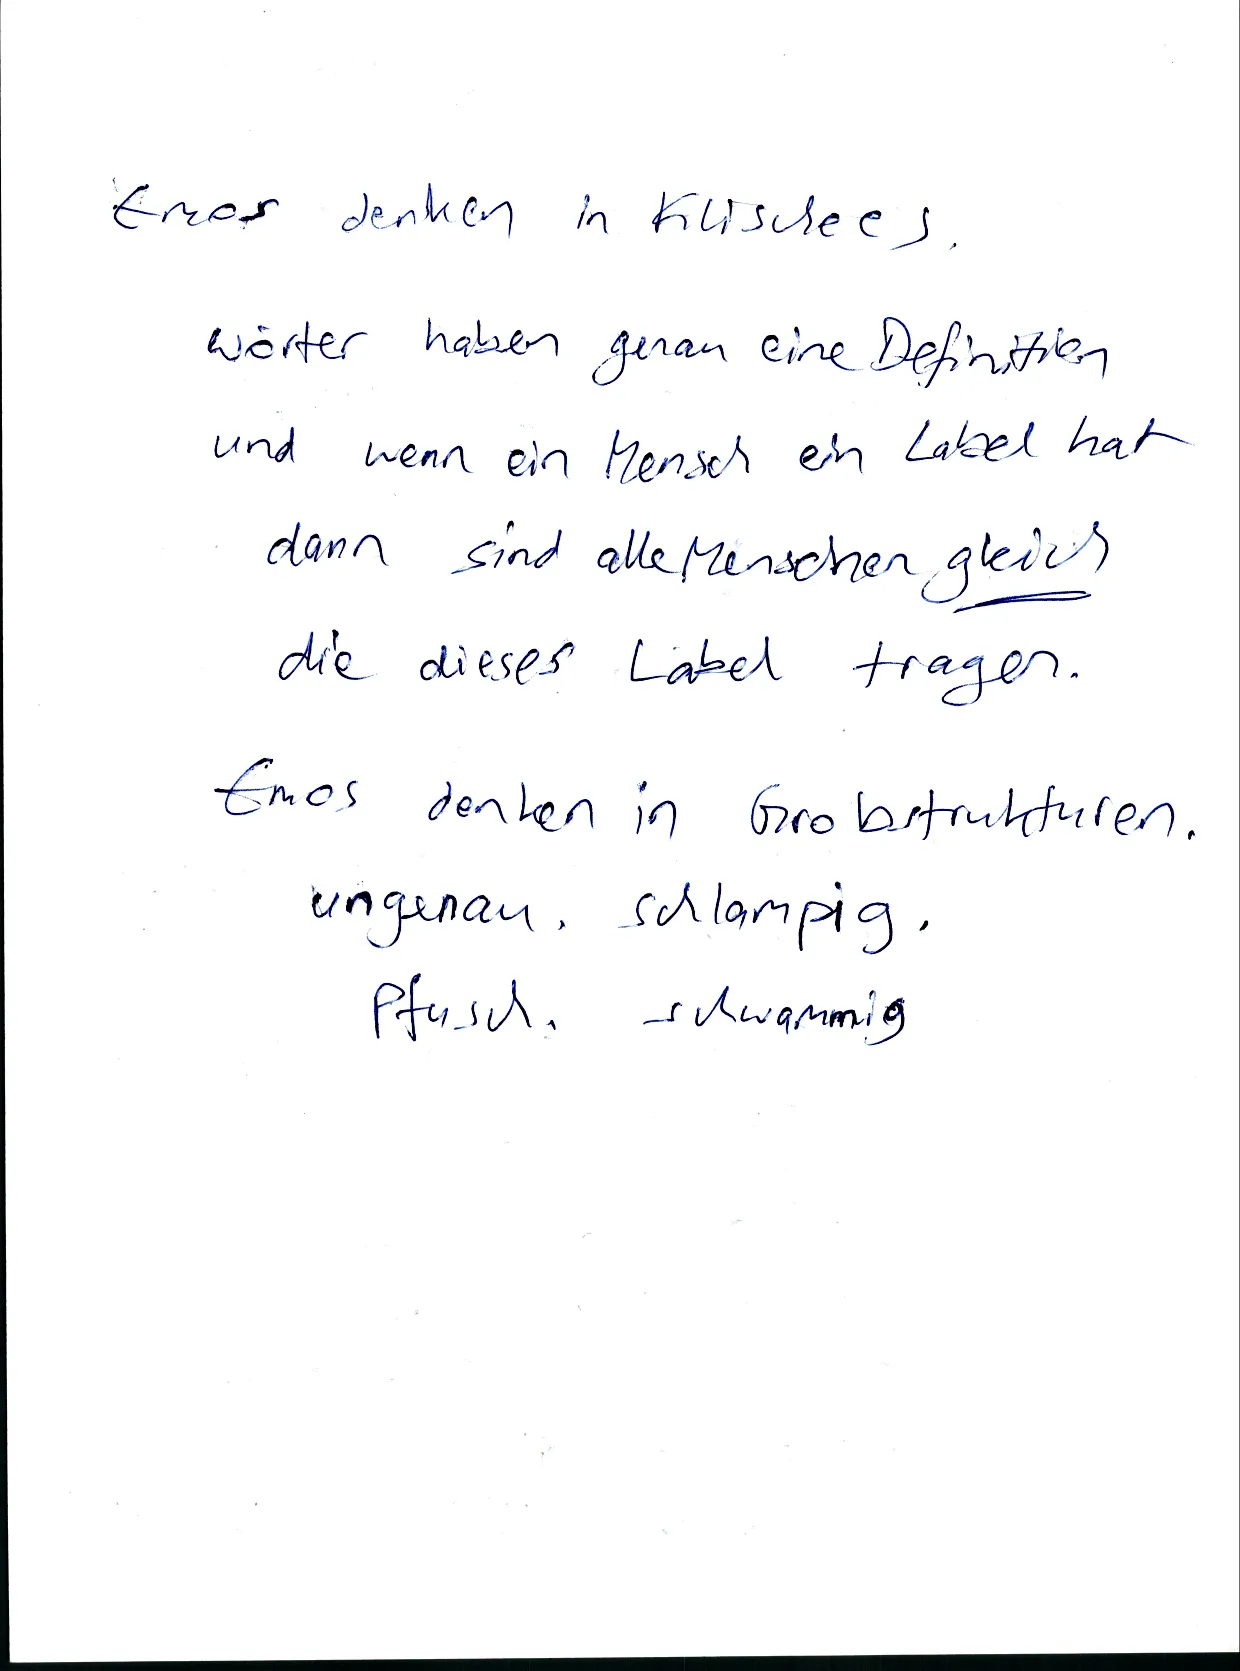 Emos denken in Klischees.
wörter haben genau eine Definition
und wenn ein Mensch ein Label hat
dann sind alle Menschen gleich
die dieses Label tragen.
Emos denken in Grobstrukturen.
ungenau. schlampig.
Pfusch. schwammig